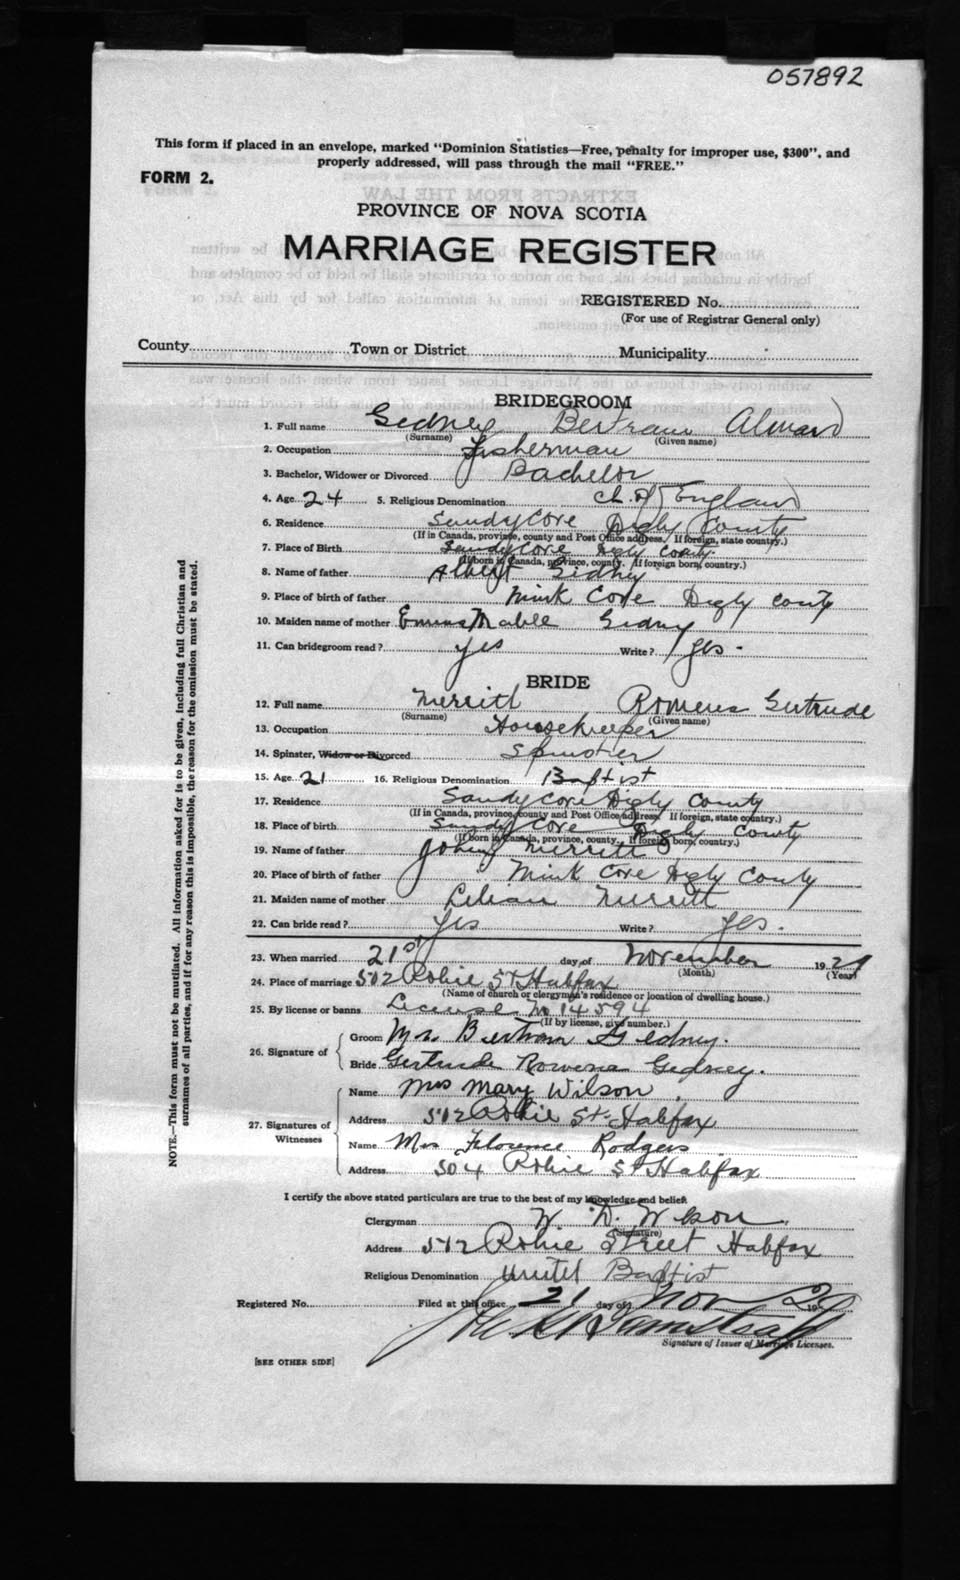 057892
This form if placed in an envelope, marked "Dominion Statistics—Free, penalty for improper use, $300", and
properly addressed, will pass through the mail "FREE."
FORM 2.
PROVINCE OF NOVA SCOTIA
MARRIAGE REGISTER
REGISTERED No.
(For use of Registrar General only)
County Town or District Municipality
BRIDEGROOM
1. Full name Gedney Bertram Alward
(Surname) (Given name)
2. Occupation Fisherman
3. Bachelor, Widower or Divorced Bachelor
4. Age 24 5. Religious Denomination Ch. of England
6. Residence Sandy Cove Digby County
(If in Canada, province, county and Post Office address. If foreign, state country.)
7. Place of Birth Sandy Cove Digby County
(If born in Canada, province, county. If foreign born, country.)
8. Name of father Albert Gidney
9. Place of birth of father Mink Cove Digby County
10. Maiden name of mother Emma Mable Gidny
11. Can bridegroom read? yes Write? yes.
BRIDE
12. Full name Merritt Gertrude
(Surname) (Given name)
13. Occupation Housekeeper
14. Spinster, Widow or Divorced Spinster
15. Age 21 16. Religious Denomination Baptist
17. Residence Sandy Cove Digby County
(If in Canada, province, county and Post Office address. If foreign, state country.)
18. Place of birth Sandy Cove Digby County
(If born in Canada, province, county. If foreign born, country.)
19. Name of father Merritt
20. Place of birth of father Mink Cove Digby County
21. Maiden name of mother Lilian Merritt
22. Can bride read? Yes Write? yes.
23. When married 21st day of November 1929
(Month) (Year)
24. Place of marriage 502 Robie St Halifax
(Name of church or clergyman's residence or location of dwelling house.)
25. By license or banns License No 14594
(If by license, give number.)
26. Signature of Groom Mr. Bertram Gedney.
Bride Gertrude Rowena Gedney.
27. Signatures of Witnesses Name Mrs Mary Wilson
Address 502 Robie St. Halifax
Name Mrs Florence Rodgers
Address 504 Robie St Halifax
I certify the above stated particulars are true to the best of my knowledge and belief.
Clergyman W. D. Wilson
(Signature)
Address 502 Robie Street Halifax
Religious Denomination United Baptist
Registered No. Filed at this office 21 day of Nov 1929
Signature of Issuer of Marriage Licenses.
[SEE OTHER SIDE]
NOTE.—This form must not be mutilated. All information asked for is to be given, including full Christian and
surnames of all parties, and if for any reason this is impossible, the reason for the omission must be stated.